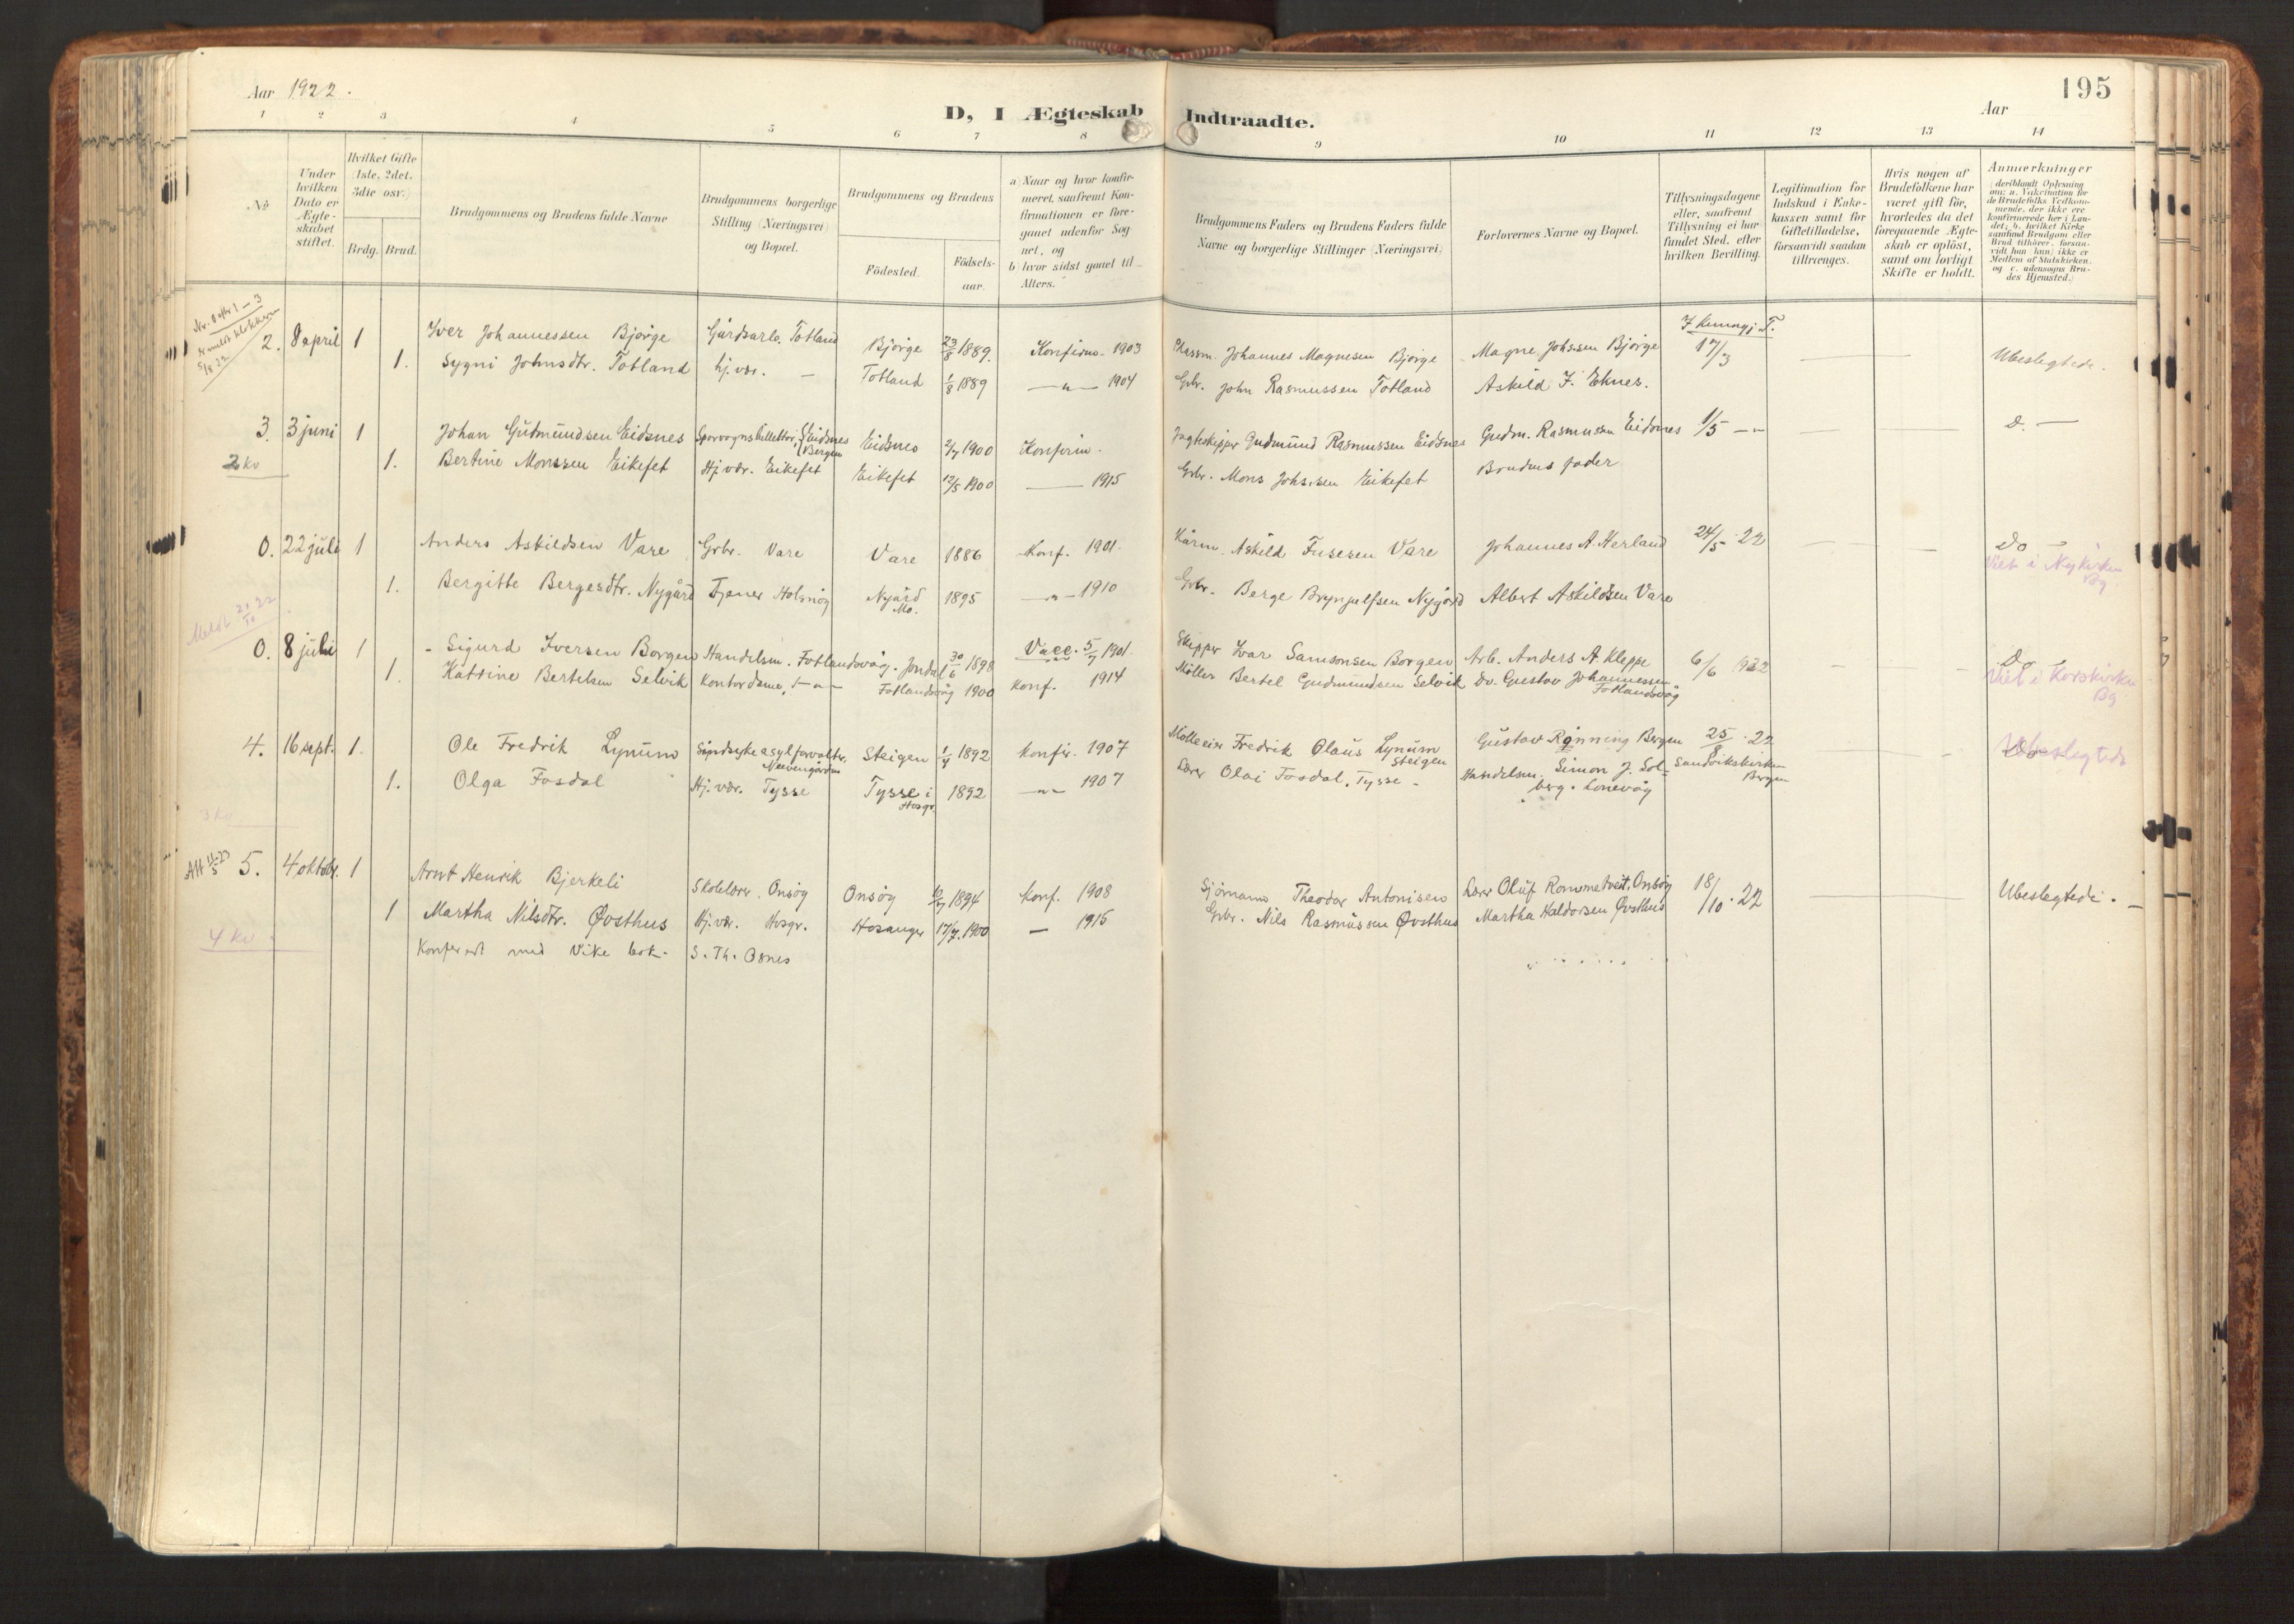 Aar 1922.
D, I Ægteskab Indtraadte.
Aar
195
1 2 3 4 5 6 7 8 9 10 11 12 13 14
No
Under hvilken Dato er Ægteskabet stiftet.
Hvilket Gifte (1ste, 2det, 3die osv.)
Brdg. Brud.
Brudgommens og Brudens fulde Navne
Brudgommens borgerlige Stilling (Næringsvei) og Bopæl.
Brudgommens og Brudens
Födested.
Födsels-aar.
a) Naar og hvor konfirmeret, saafremt Konfirmationen er foregaaet udenfor Sognet, og
b) hvor sidst gaaet til Alters.
Brudgommens Faders og Brudens Faders fulde Navne og borgerlige Stillinger (Næringsvei)
Forlovernes Navne og Bopæl.
Tillysningsdagene eller, saafremt Tillysning ei har fundet Sted, efter hvilken Bevilling.
Legitimation for Indskud i Enkekassen samt for Giftetilladelse, forsaavidt saadan tiltrænges.
Hvis nogen af Brudefolkene har været gift för, hvorledes da det foregaaende Ægteskab er oplöst, samt om lovligt Skifte er holdt.
Anmærkninger
(deriblandt Oplysning om: a. Vakcination for de Brudefolks Vedkommende, der ikke ere konfirmerede her i Landet; b. hvilket Kirkesamfund Brudgom eller Brud tilhörer, forsaavidt han (hun) ikke er Medlem af Statskirken, og c. udensogns Brudes Hjemsted.)
2. 8 april 1 Iver Johannessen Bjørge Gårdsarb. Totland Bjørge 23/8 1889. Konfirm. 1903 Johannes Magnesen Bjørge Magne Johssen Bjørge 17/3 Ubeslegtede.
1. Sygni Johnsdtr. Totland hj. vær. — Totland 1/8 1889 —"— 1904 Gbr. John Rasmussen Totland Askild J. Eknes.
3. 3 juni 1 Johan Gudmundsen Eidsnes Eidsnes Bergen Eidsnes 2/7 1900 Konfirm. Jagtskipper Gudmund Rasmussen Eidsnes Gudm. Rasmussen Eidsnes 1/5 —"— D. —
2 kv 1. Bertine Monssen Eikefet Hj. vær. Eikefet Eikefet 12/5 1900 — 1915 Gbr. Mons Johssen Eikefet Brudens fader
0. 22 juli 1 Anders Askildsen Vare Grbr. Vare Vare 1886 Konf. 1901. Kårm. Askild Fusesen Vare Johannes A. Herland 24/5 22 Do —
Viet i Nykirken Bg
1. Bergitte Bergesdtr. Nygård Tjener Holsnøy Nygård Mo. 1895 —"— 1910 Gbr. Berge Brynjulfsen Nygård Albert Askildsen Vare
Meldt 21/10 22
0. 8 juli 1 Sigurd Iversen Borgen Handelsm. Fotlandsvåg. Jondal 30/6 1898 Vacc. 5/7 1901. Skipper Ivar Samsonsen Borgen Arb. Anders A. Kleppe 6/6 1922 Do —
Viet i Korskirken Bg
1. Katrine Bertelsen Selvik Kontordame, —"— Fotlandsvåg 1900 Konf. 1914 Møller Bertel Gudmundsen Selvik Do. Gustav Johannessen Fotlandsvåg
4. 16 sept. 1. Ole Fredrik Lynum Sindssykeasylforvalter, Neevengården Steigen 1/4 1892 Konfir. 1907 Mølleeier Fredrik Olaus Lynum Steigen Gustav Rønning Bergen 25/8 22 Sandvikskirken Bergen Ubeslegtede
1. Olga Fosdal Hj. vær. Tysse Tysse i Hosgr. 1892 —"— 1907 Lærer Olai Fosdal, Tysse — Handelsm. Simon J. Solberg. Lonevåg
3 kv
5. 4 oktobr. 1 Arnt Henrik Bjerkeli Skolelærer. Onsøy Onsøy 1894 Konf. 1908 Sjömann Theodor Antonisen Lærer Oluf Rommetveit, Onsøy 18/10 22 Ubeslegtede. —
1 Martha Nilsdtr. Øvsthus Hj. vær. Hosgr. Hosanger 17/7 1900 — 1915 Gbr. Nils Rasmussen Øvsthus Martha Haldorsen Øvsthus
4 Kv
Konferert med Vike bok. S. Th. Osnes